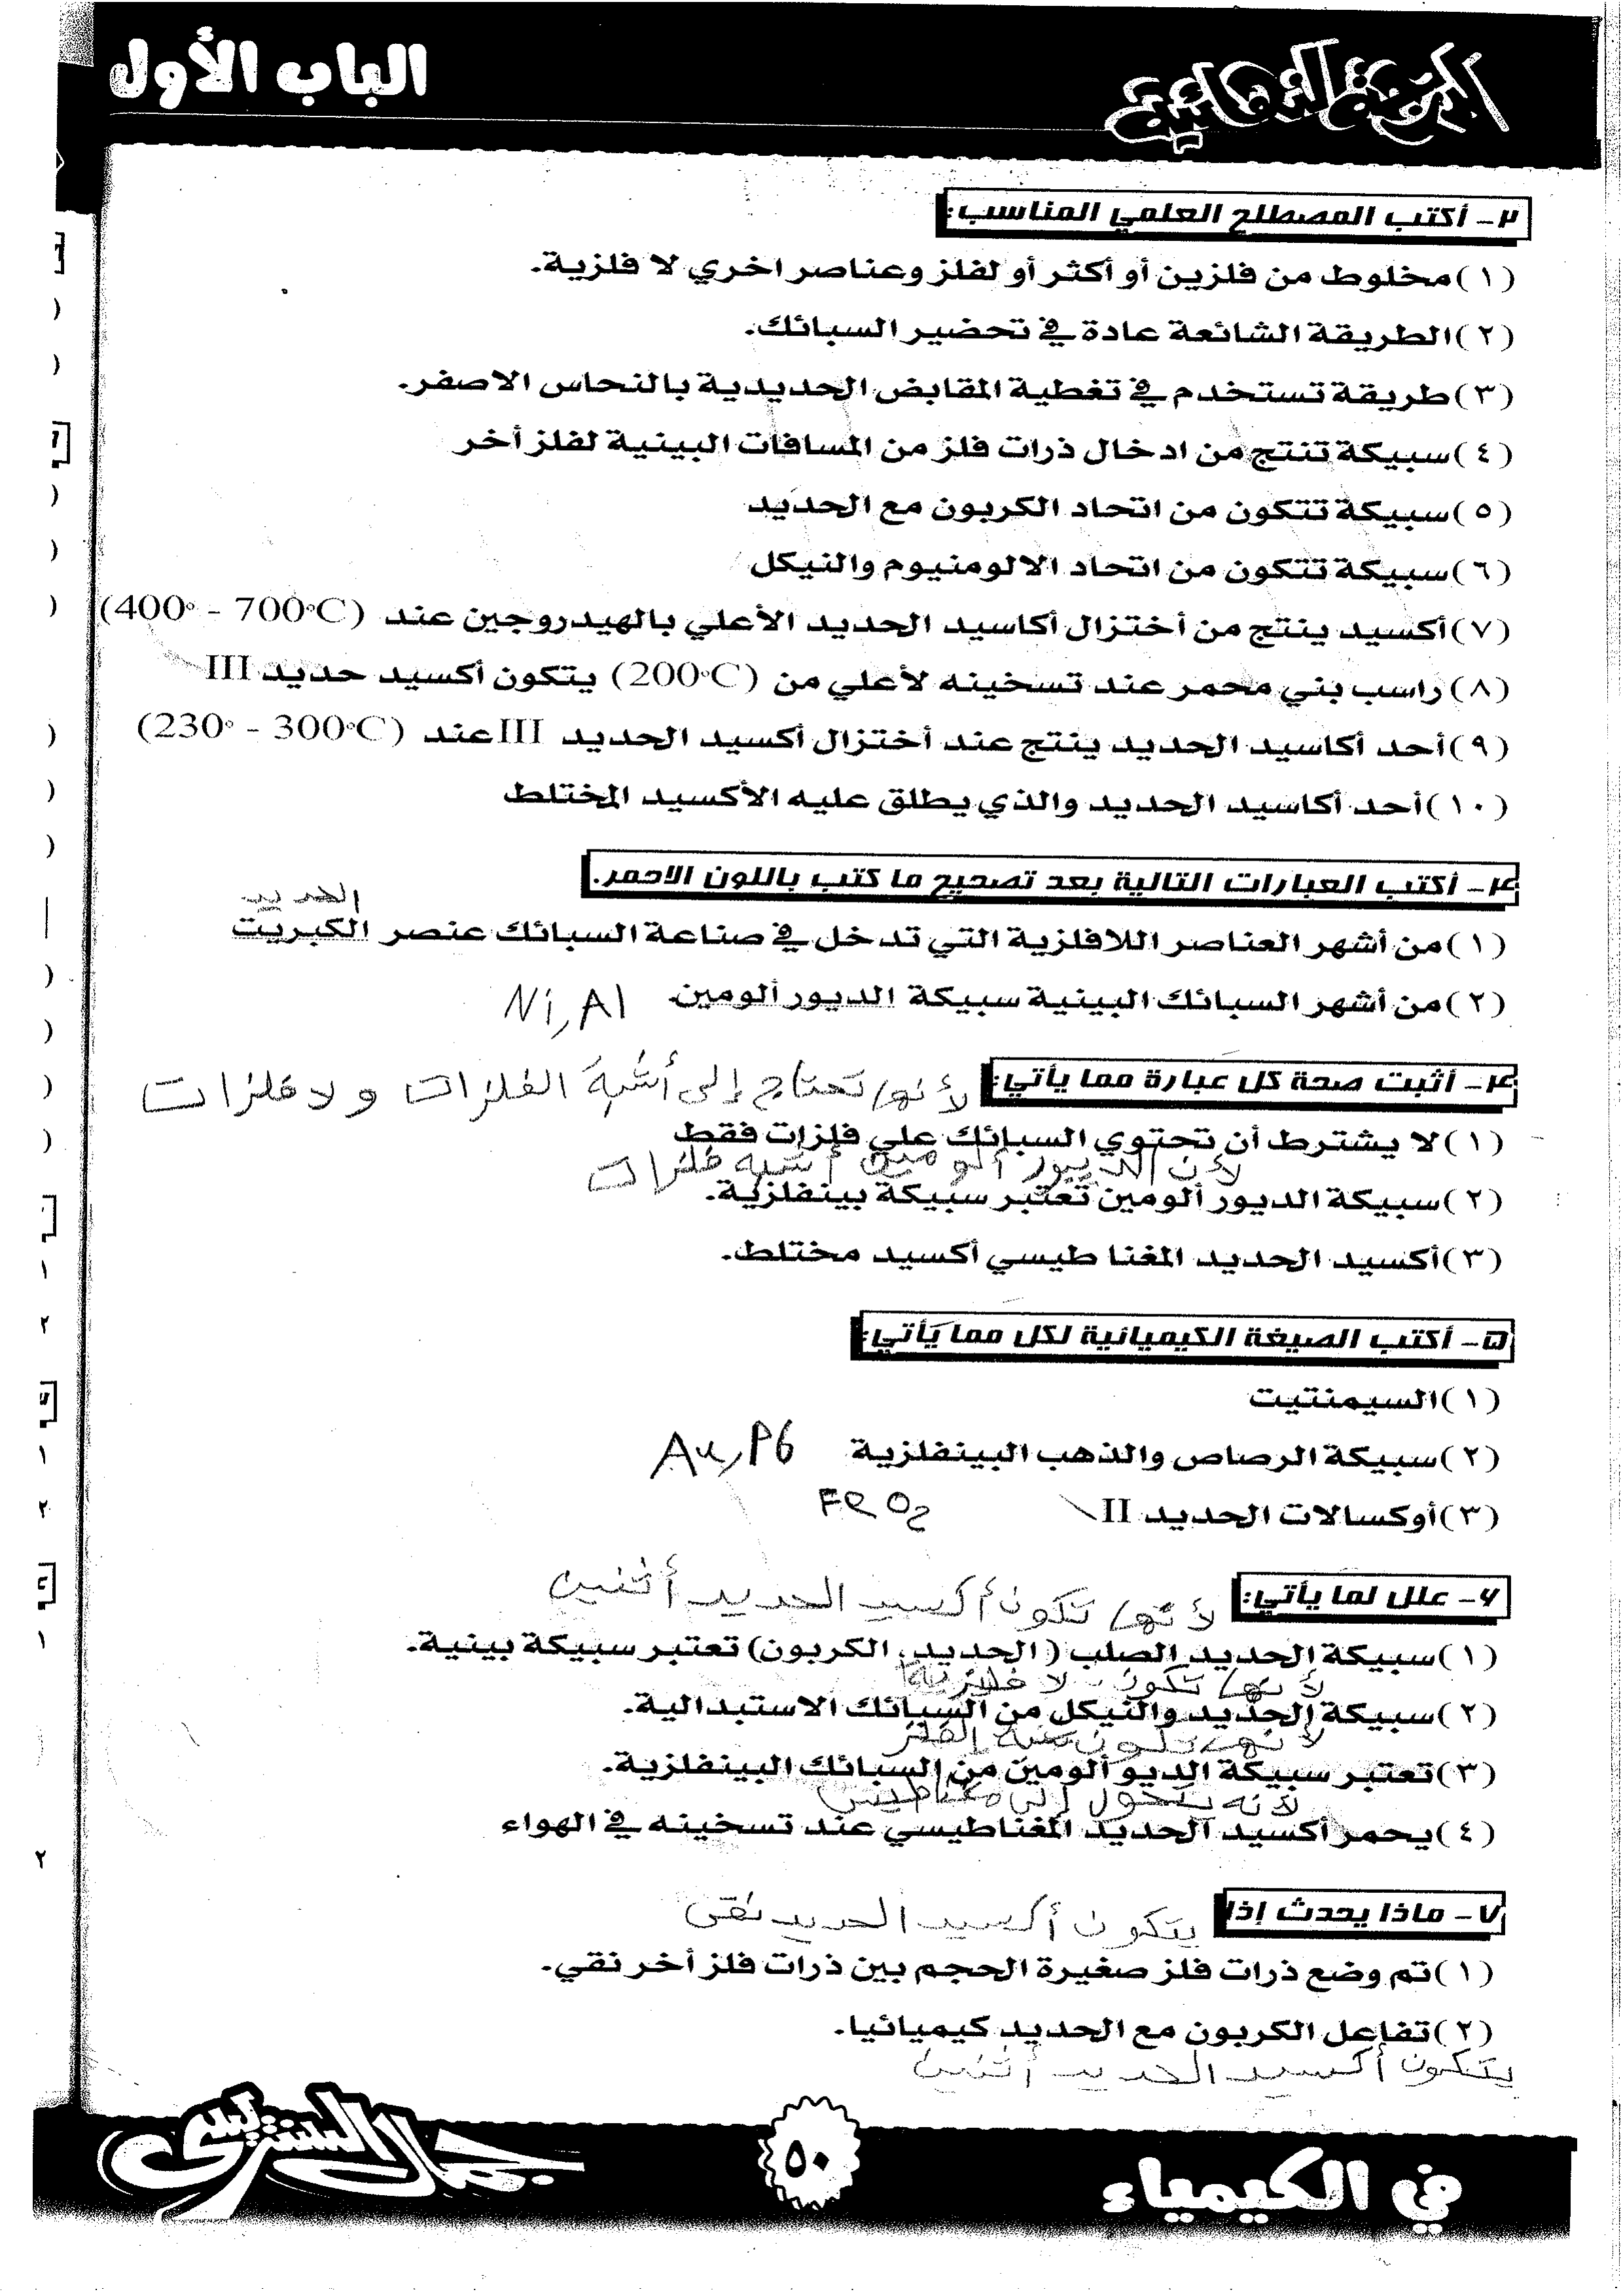 الباب الأول
٢- أكتب المصطلح العلمي المناسب:
(١) مخلوط من فلزين أو أكثر أو لفلز وعناصر اخري لا فلزية.
(٢) الطريقة الشائعة عادة في تحضير السبائك.
(٣) طريقة تستخدم في تغطية المقابض الحديدية بالنحاس الاصفر.
(٤) سبيكة تنتج من ادخال ذرات فلز من المسافات البينية لفلز أخر
(٥) سبيكة تتكون من اتحاد الكربون مع الحديد
(٦) سبيكة تتكون من اتحاد الالومنيوم والنيكل
(٧) أكسيد ينتج من أختزال أكاسيد الحديد الأعلي بالهيدروجين عند (400° - 700°C)
(٨) راسب بني محمر عند تسخينه لأعلي من (200°C) يتكون أكسيد حديد III
(٩) أحد أكاسيد الحديد ينتج عند أختزال أكسيد الحديد III عند (230° - 300°C)
(١٠) أحد أكاسيد الحديد والذي يطلق عليه الأكسيد المختلط
٣- أكتب العبارات التالية بعد تصحيح ما كتب باللون الاحمر.
الحديد
(١) من أشهر العناصر اللافلزية التي تدخل في صناعة السبائك عنصر الكبريت
(٢) من أشهر السبائك البينية سبيكة الديور ألومين Ni, Al
٤- أثبت صحة كل عبارة مما يأتي: لأنها تحتاج إلى أشبة الفلزات ولا فلزات
(١) لا يشترط أن تحتوي السبائك علي فلزات فقط
لأن الديور ألومين أشبه فلزات
(٢) سبيكة الديور ألومين تعتبر سبيكة بينفلزية.
(٣) أكسيد الحديد المغنا طيسي أكسيد مختلط.
٥- أكتب الصيغة الكيميائية لكل مما يأتي:
(١) السيمنتيت
(٢) سبيكة الرصاص والذهب البينفلزية Au, Pb
(٣) أوكسالات الحديد II FeO2
٦- علل لما يأتي: لأنها تكون أكسيد الحديد أثنين
(١) سبيكة الحديد الصلب (الحديد، الكربون) تعتبر سبيكة بينية.
لأنها تكون لا فلزية
(٢) سبيكة الحديد والنيكل من السبائك الاستبدالية.
لأنها تكون الفلز
(٣) تعتبر سبيكة الديو ألومين من السبائك البينفلزية.
لأنه يتحول إلى مغناطيس
(٤) يحمر أكسيد الحديد المغناطيسي عند تسخينه في الهواء
٧- ماذا يحدث إذا يتكون أكسيد الحديد نقى
(١) تم وضع ذرات فلز صغيرة الحجم بين ذرات فلز أخر نقي.
(٢) تفاعل الكربون مع الحديد كيميائيا.
يتكون أكسيد الحديد أثنين
في الكيمياء
٥٠
جمال السنتريسى